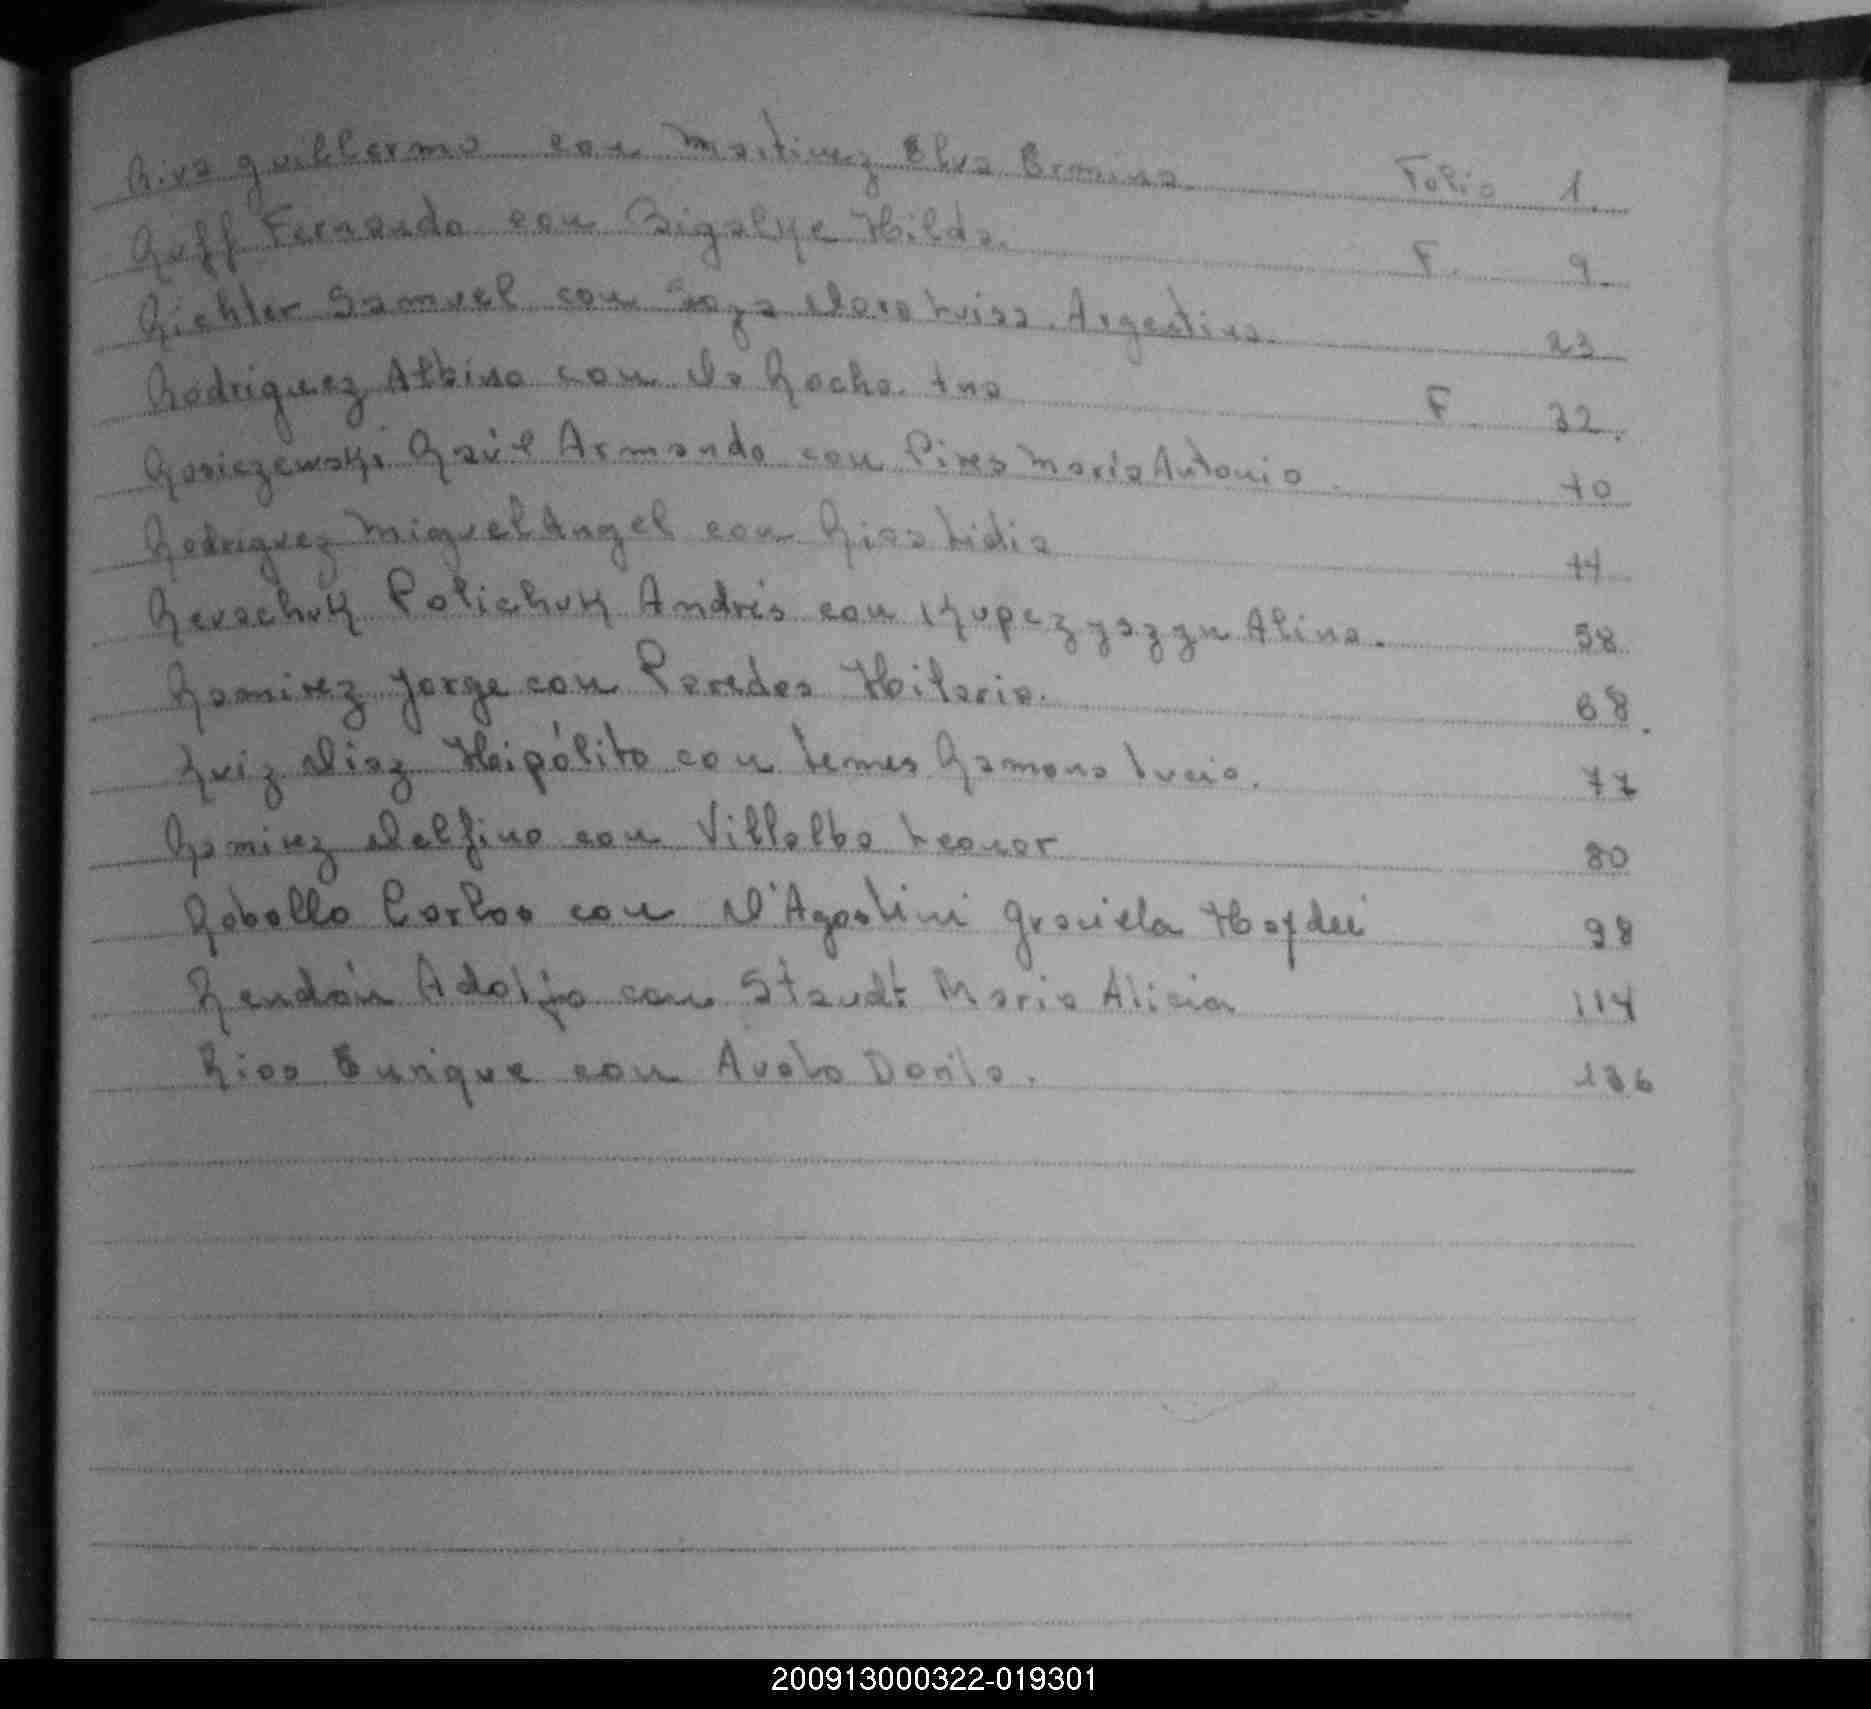 Riva guillermo con Martinez Elva Ermina. Folio 1.
Ruff Fernando con Bigalke Hilda. F. 9.
Richter Samuel con Soza Dora Luisa. Argentina. 23
Rodriguez Albino con Da Rocha. Ana F. 32.
Rosiczewski Raúl Armando con Pires Maria Antonia 40
Rodriguez Miguel Angel con Rios Lidia 44
Revachuk Polichuk Andrés con Alina. 58
Ramirez Jorge con Paredes Hilaria. 68.
Ruiz Diaz Heipólito con Lemes Ramona Lucia. 77
Ramirez Delfino con Villalba Leonor 80
Robollo Carlos con D'Agostini Graciela Haydeé 98
Rendón Adolfo con Staudt Maria Alicia 114
Rios Enrique con Dorila. 136
200913000322-019301